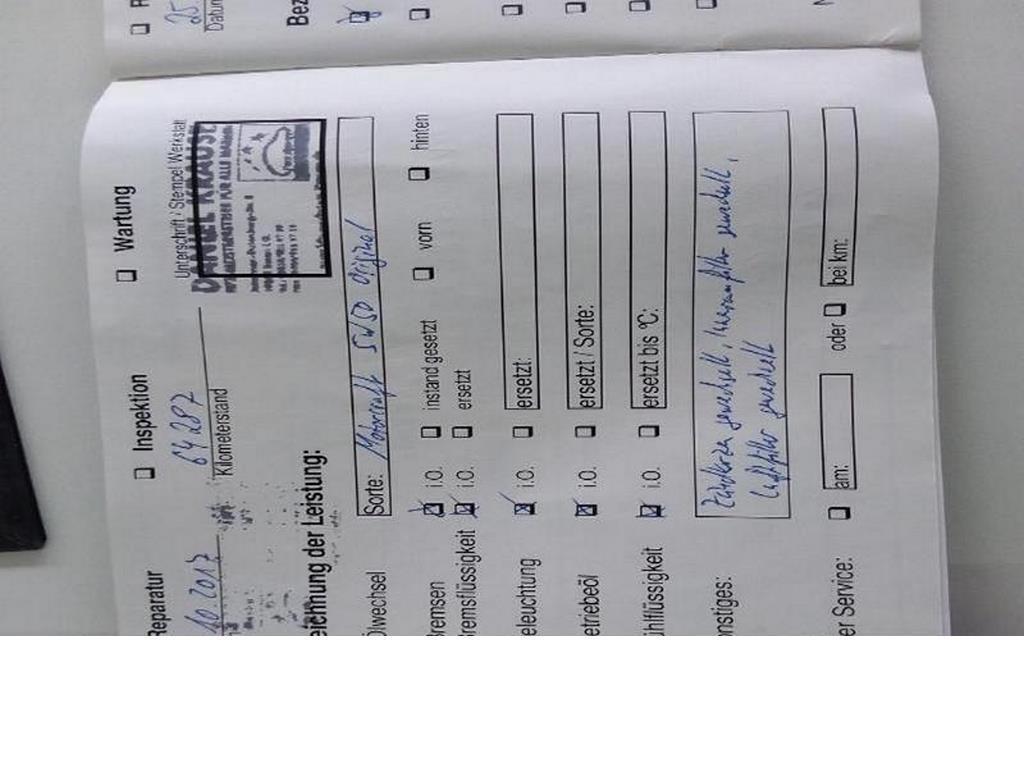 Reparatur ☐ Inspektion ☐ Wartung
10.2017 64 287
Kilometerstand Unterschrift / Stempel Werkstatt
DANIEL KRAUSE
FÜR ALLE
eichnung der Leistung:
Ölwechsel Sorte: Motorcraft 5W30 Original
Bremsen ☒ i.O. ☐ instand gesetzt ☐ vorn ☐ hinten
Bremsflüssigkeit ☒ i.O. ☐ ersetzt
eleuchtung ☒ i.O. ☐ ersetzt:
etriebeöl ☒ i.O. ☐ ersetzt / Sorte:
ühlflüssigkeit ☒ i.O. ☐ ersetzt bis °C:
onstiges: Zündkerzen gewechselt, Innenraumfilter gewechselt,
Luftfilter gewechselt
er Service: ☐ am: oder ☐ bei km:
☐ R
25
Datum
Bez